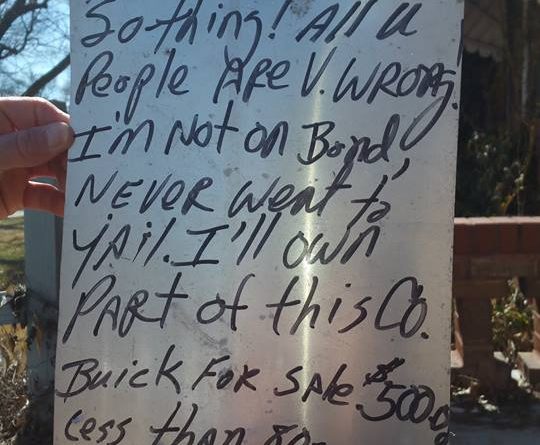 So thing! All u
People ARE V. WRONG!
I'm Not on Bond
NEVER Went to
YAil. I'll own
PARt of this Co.
Buick FoR SAle $500.
Less than 80